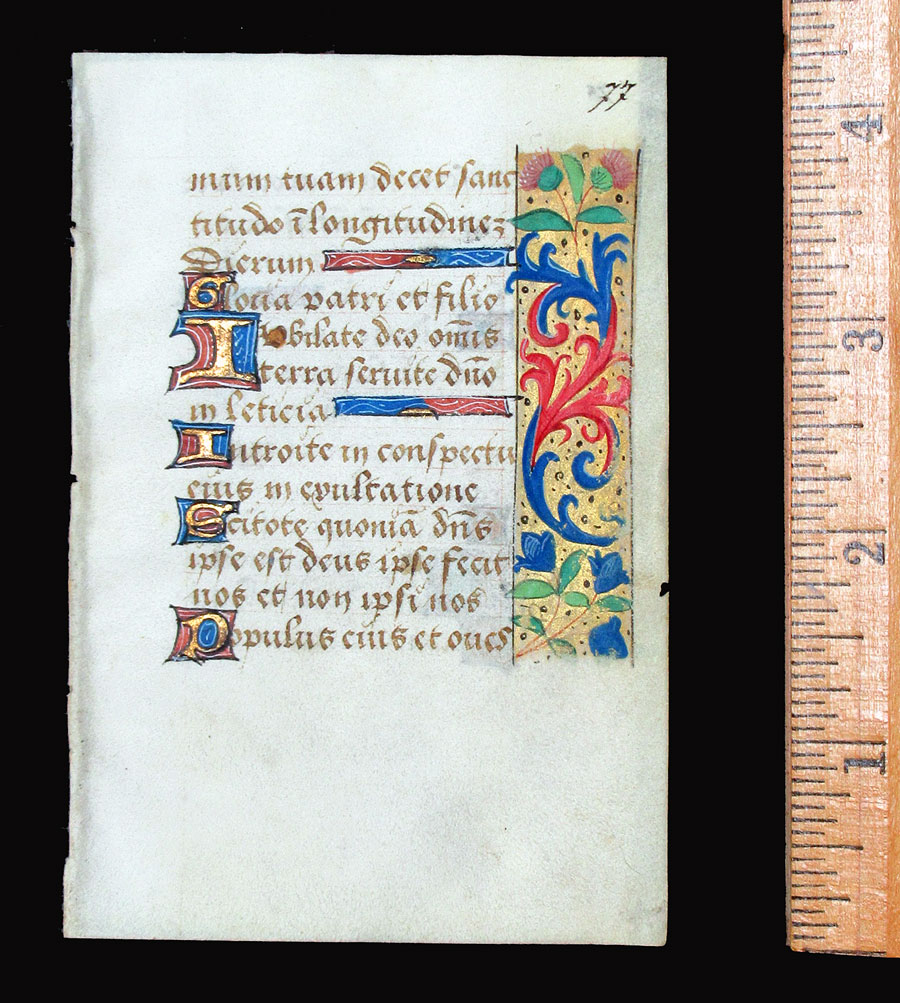 77
mum tuam decet sanc
titudo ī longitudinez
dierum
Gloria patri et filio
Iubilate deo om̄is
terra seruite dn̄o
in leticia
Introite in conspectu
eius in exultatione
Scitote quoniā dn̄s
ipse est deus ipse fecit
nos et non ipsi nos
Populus eius et oues
4
3
2
1